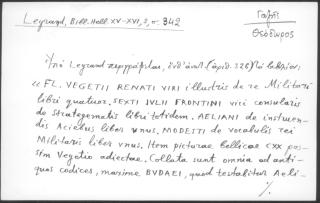 Legrand, Bibl. Hell. XV-XVI, 3, σ. 342
Γαζῆς
Θεόδωρος
Ὑπὸ Legrand περιγράφεται, ὑπ' ἀριθ.
« FL. VEGETII RENATI VIRI illustris de re Militari
libri quatuor. SEXTI IVLII FRONTINI viri consularis
de Strategematis libri totidem. AELIANI de instruen-
dis Aciebus liber vnus. MODESTI de vocabulis rei
Militaris liber vnus. Item picturae bellicae CXX pas-
sim Vegetio adiectae. Collata sunt omnia ad anti-
quos codices, maxime BVDAEI, quod testabitur Aeli-
./.